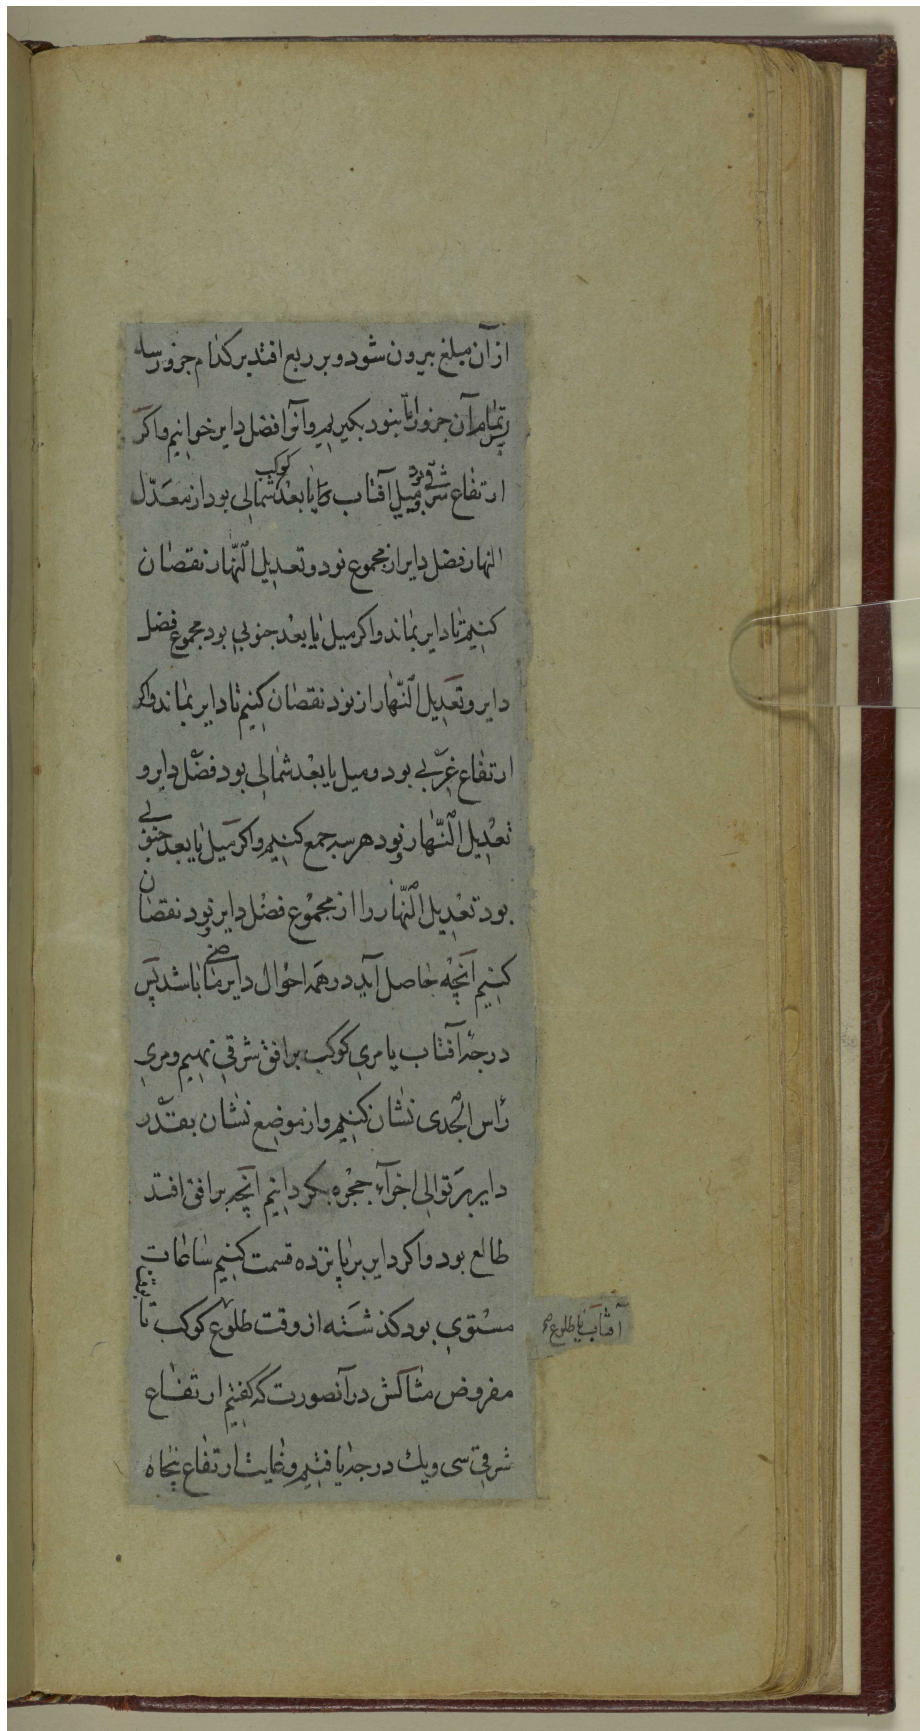 از آن مبلغ بیرون شود و بر ربع افتد بر کدام جزو رسد
پس تمام آن جزو را تا بنود بکیریم و آنرا فضل دایر خوانیم و اکر
ارتفاع شرقی بود و میل آفتاب یا بعد کوکب شمالی بود از معدّل
النهار فضل دایر از مجموع نود و تعدیل النّهار نقصان
کنیم تا دایر بماند و اکر میل یا بعد جنوبی بود مجموع فضل
دایر و تعدیل النّهار از نود نقصان کنیم تا دایر بماند و اکر
ارتفاع غربی بود و میل یا بعد شمالی بود فضل دایر و
تعدیل النّهار و نود هر سه جمع کنیم و اکر میل یا بعد جنوبی
بود تعدیل النّهار را از مجموع فضل دایر و نود نقصان
کنیم آنچه حاصل آید در همه احوال دایر ماضی باشد پس
درجهٔ آفتاب یا مری کوکب بر افق شرقی نهیم و مری
رأس الجدی نشان کنیم و از موضع نشان بقدر
دایر بر توالی اجزآء حجره بکردانیم آنچه بر افق افتد
طالع بود و اکر دایر بر پانزده قسمت کنیم ساعات
مستوی بود کذشته از وقت طلوع کوکب تا بوقت
آفتاب یا طلوع
مفروض مثالش در آنصورت که کفتیم ارتفاع
شرقی سی و یک درجه یافتیم و غایت ارتفاع پنجاه